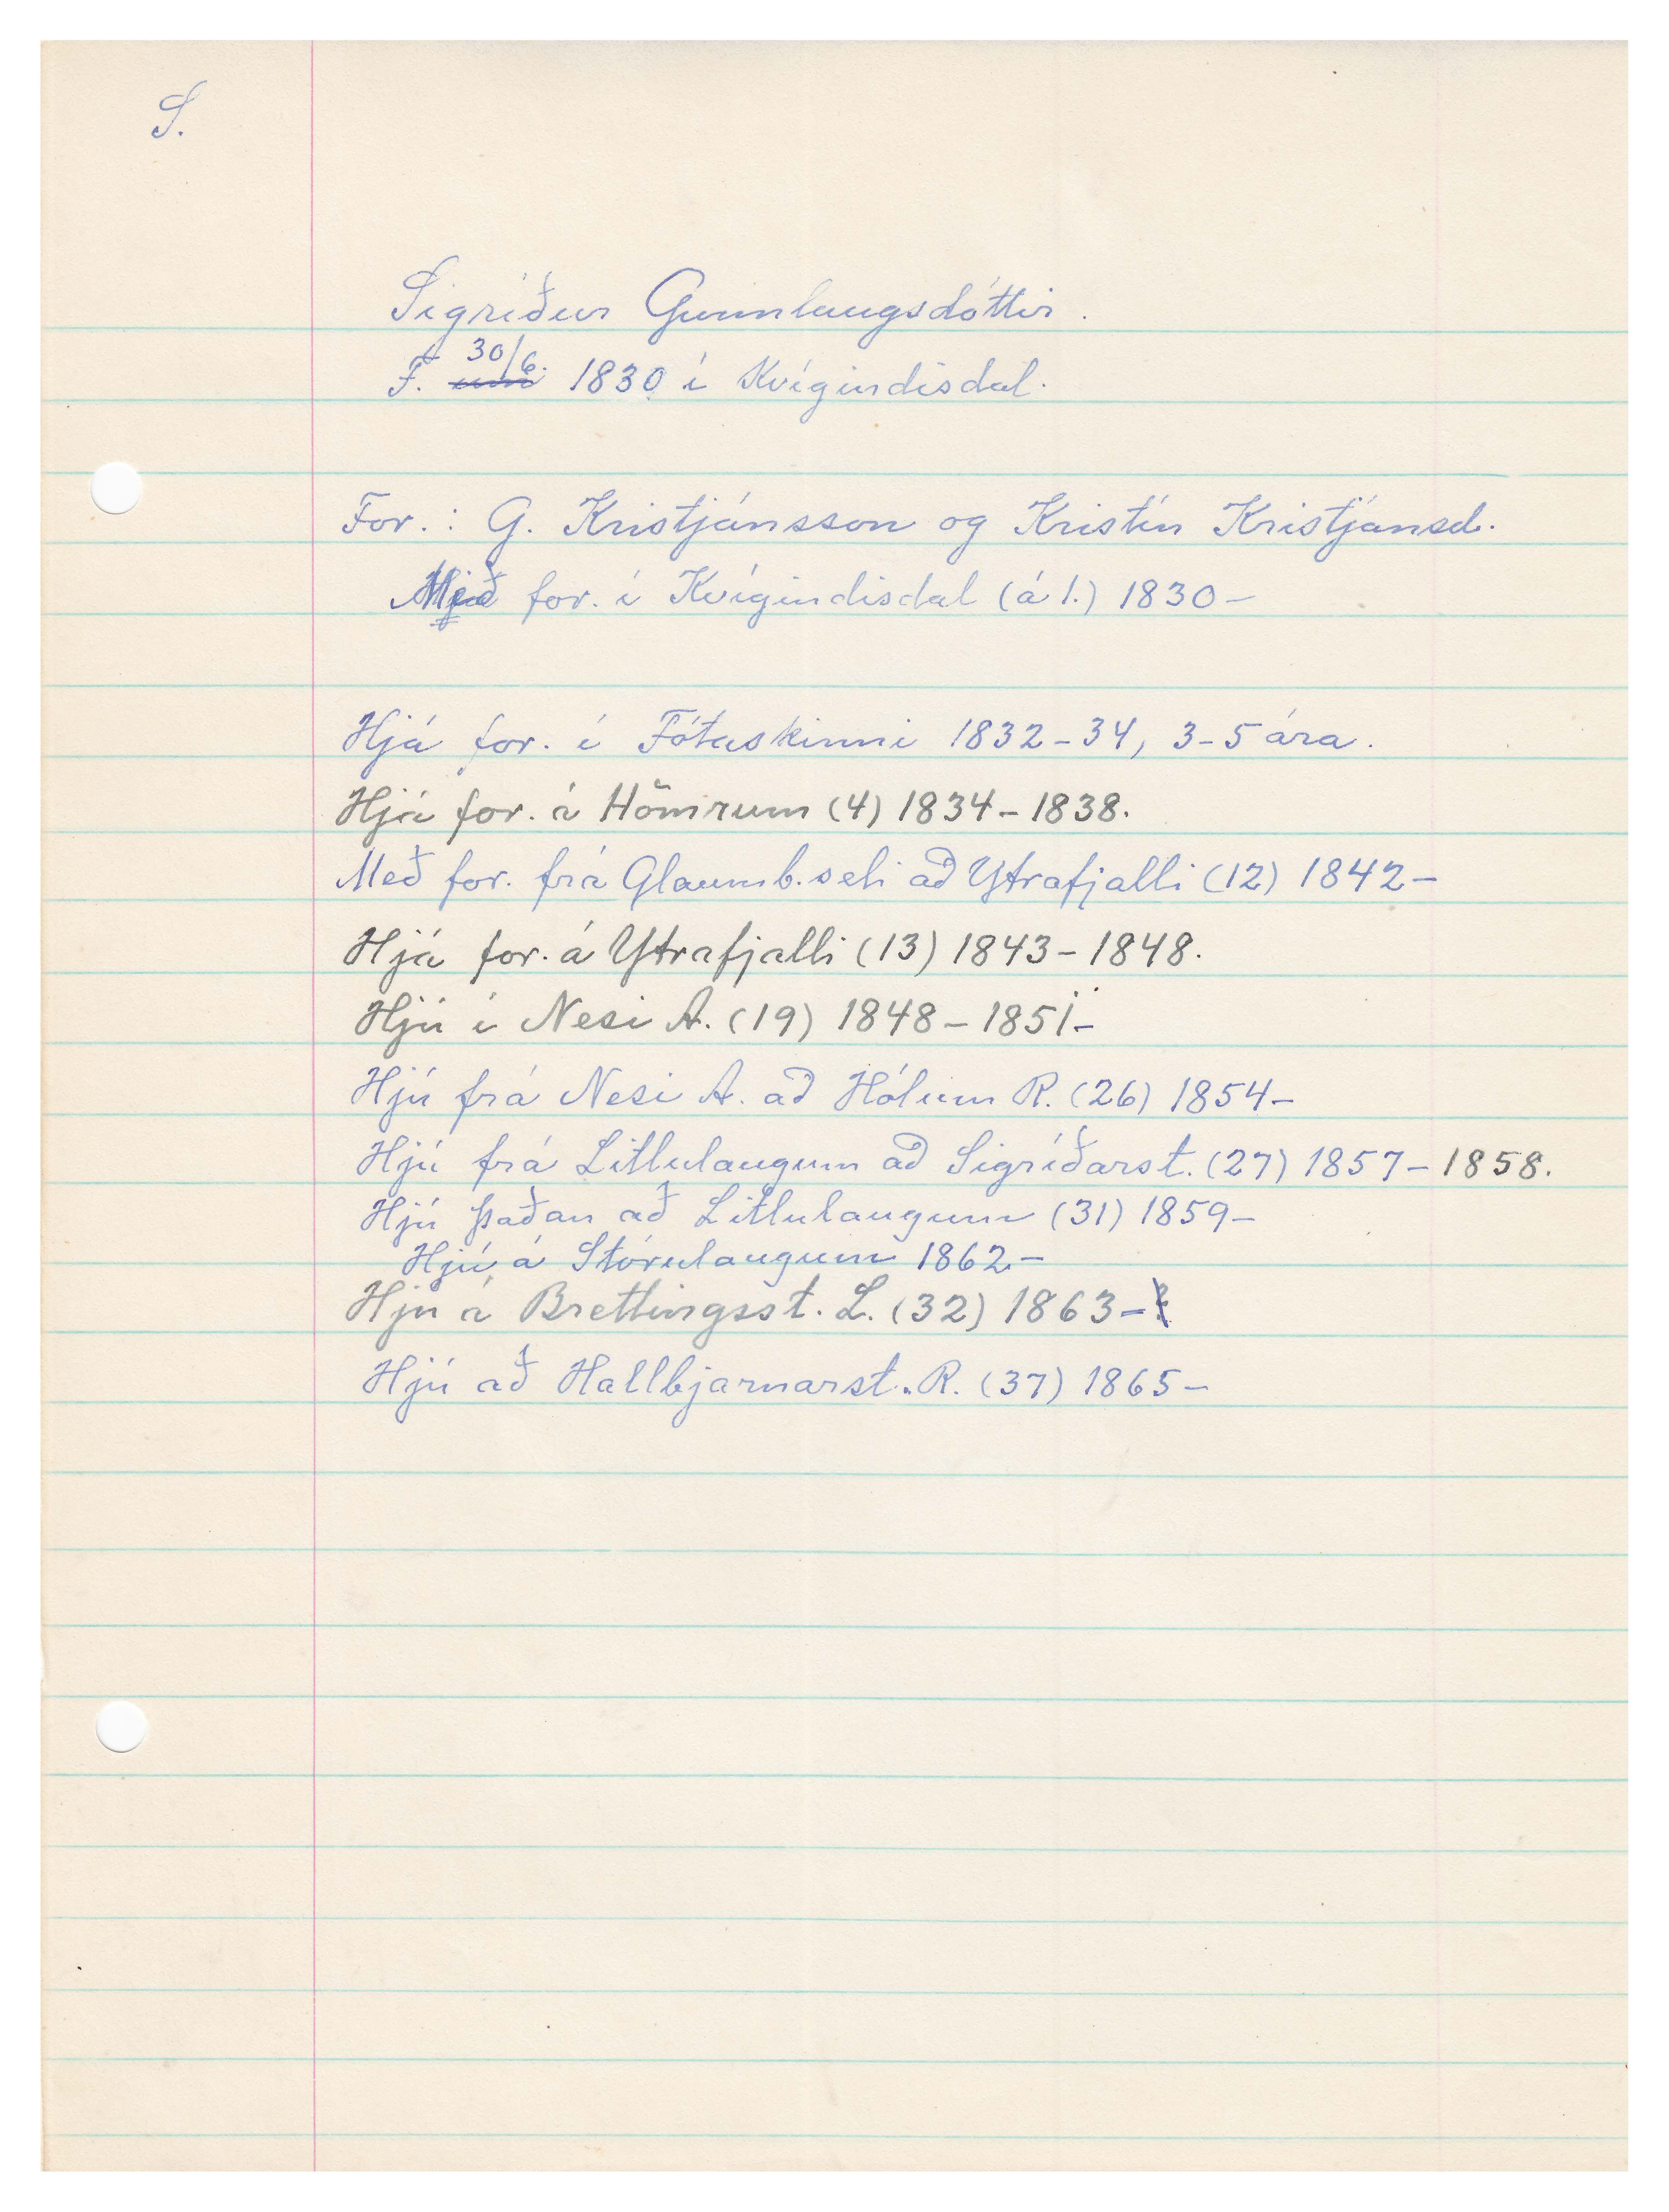 S.
Sigríður Gunnlaugsdóttir.
F. 30/6. 1830 í Kvígindisdal.
For.: G. Kristjánsson og Kristín Kristjánsd.
Með for. í Kvígindisdal (á 1.) 1830-
Hjá for. í Fótaskinni 1832-34, 3-5 ára.
Hjá for. á Hömrum (4) 1834-1838.
Með for. frá Glaumb.seli að Ytrafjalli (12) 1842-
Hjá for. á Ytrafjalli (13) 1843-1848.
Hjú í Nesi A. (19) 1848-1851-
Hjú frá Nesi A. að Hólum R. (26) 1854-
Hjú frá Litlulaugum að Sigríðarst. (27) 1857-1858.
Hjú þaðan að Litlulaugum (31) 1859-
Hjú á Stórulaugum 1862-
Hjú á Brettingsst. L. (32) 1863-
Hjú að Hallbjarnarst. R. (37) 1865-